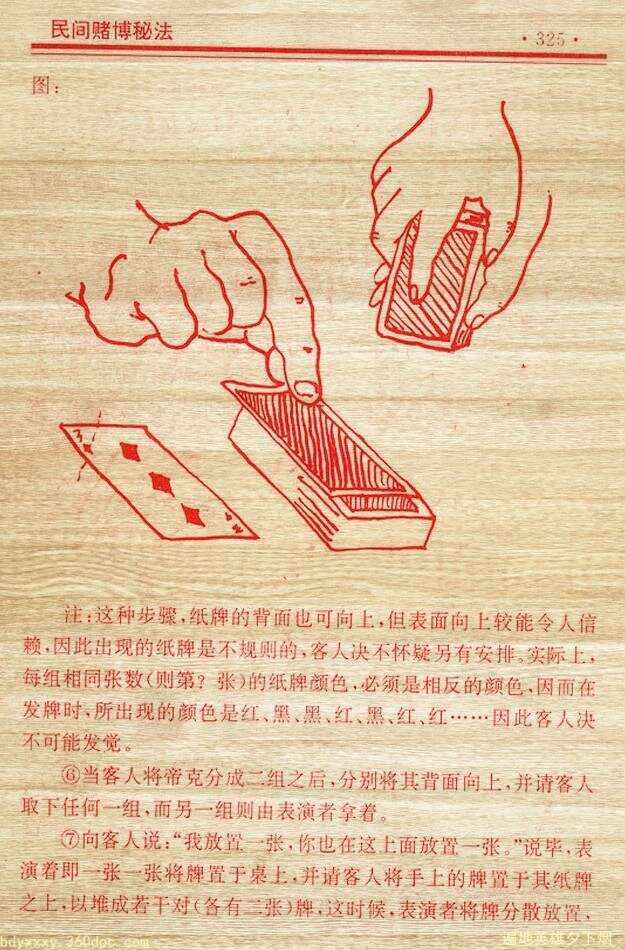 民间赌博秘法
·325·
图：
3
注：这种步骤，纸牌的背面也可向上，但表面向上较能令人信
赖，因此出现的纸牌是不规则的，客人决不怀疑另有安排。实际上，
每组相同张数（则第？张）的纸牌颜色，必须是相反的颜色，因而在
发牌时，所出现的颜色是红、黑、黑、红、黑、红、红……因此客人决
不可能发觉。
⑥当客人将帝克分成二组之后，分别将其背面向上，并请客人
取下任何一组，而另一组则由表演者拿着。
⑦向客人说：“我放置一张，你也在这上面放置一张。”说毕，表
演着即一张一张将牌置于桌上，并请客人将手上的牌置于其纸牌
之上，以堆成若干对（各有二张）牌，这时候，表演者将牌分散放置，
bdyxxxy.360dpt.com
遍地英雄夕下烟